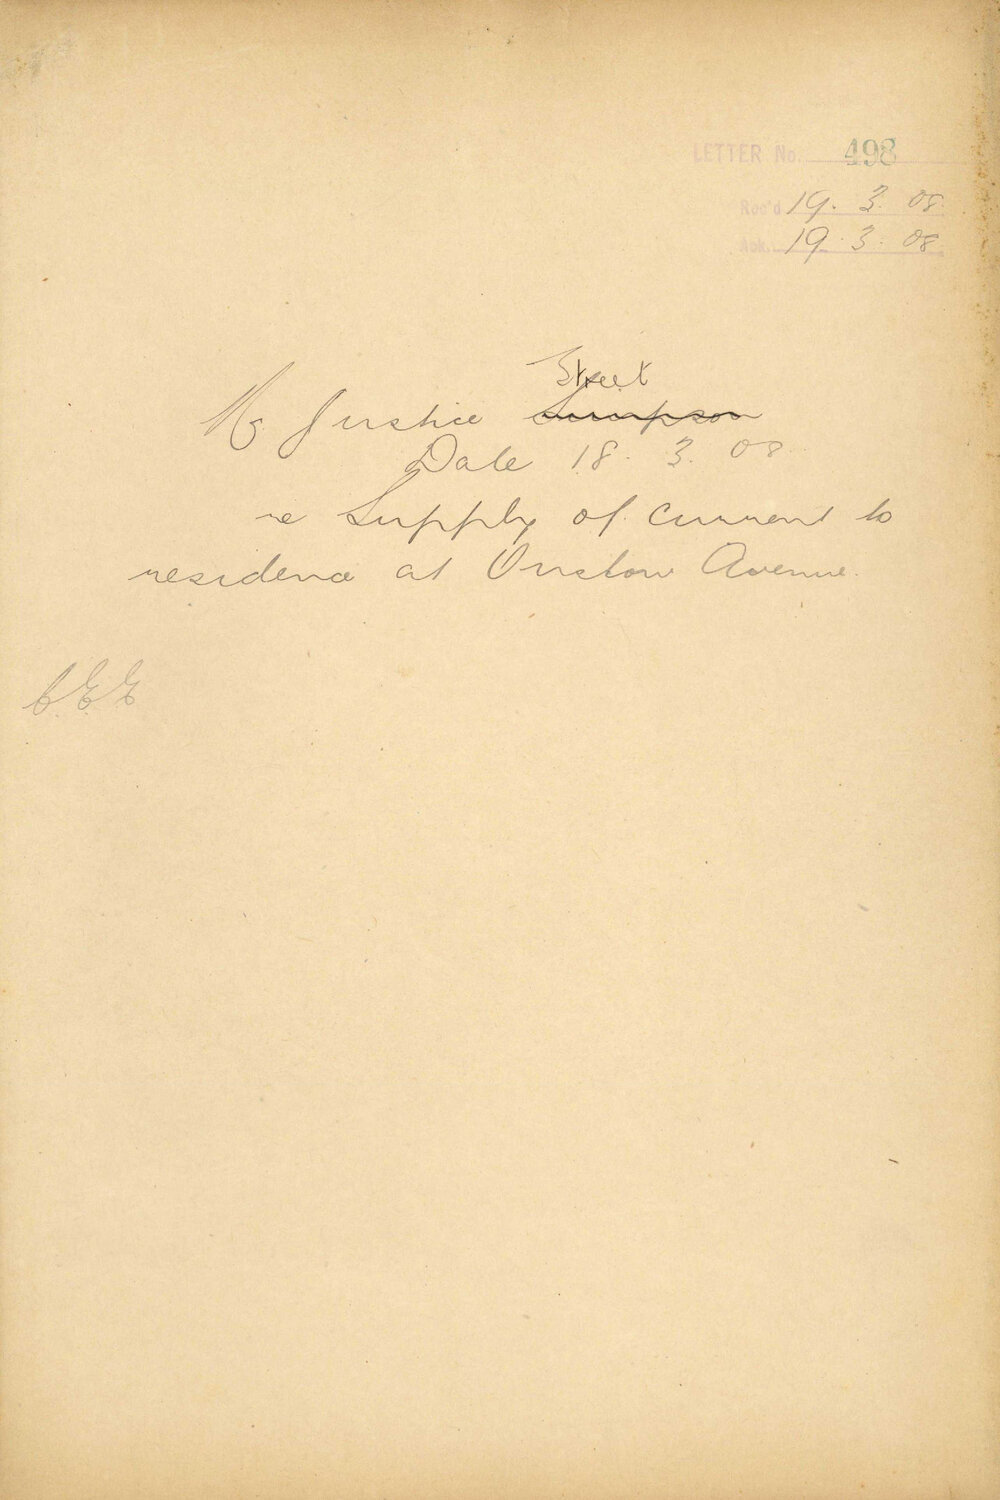 LETTER No. 498
Rec'd 19. 3. 08.
Ack. 19. 3. 08
Street
Mr Justice Simpson
Date 18. 3. 08
re Supply of current to
residence at Onslow Avenue.
C.E.E